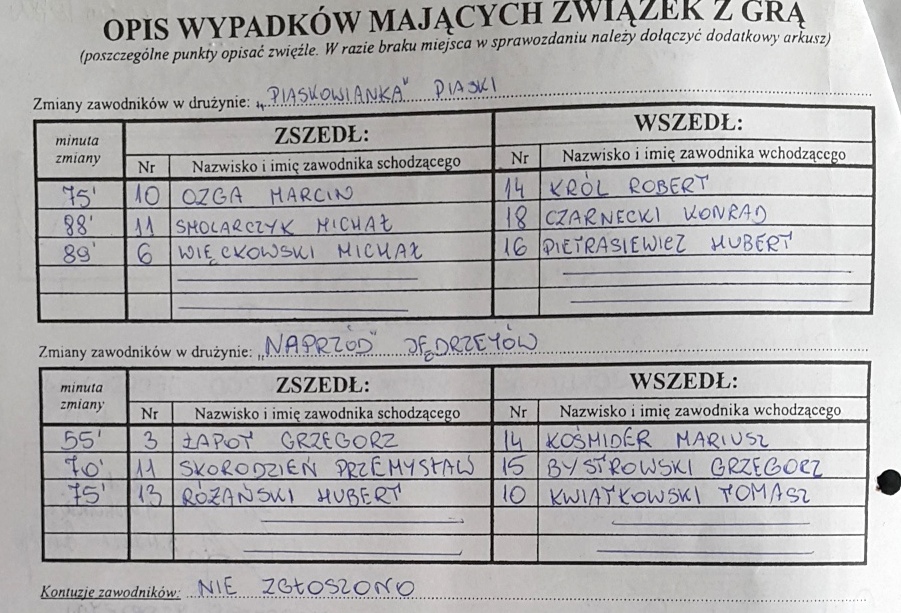 OPIS WYPADKÓW MAJĄCYCH ZWIĄZEK Z GRĄ
(poszczególne punkty opisać zwięźle. W razie braku miejsca w sprawozdaniu należy dołączyć dodatkowy arkusz)
Zmiany zawodników w drużynie: „PIASKOWIANKA" PIASKI
minuta zmiany ZSZEDŁ: WSZEDŁ:
Nr Nazwisko i imię zawodnika schodzącego Nr Nazwisko i imię zawodnika wchodzącego
75' 10 OZGA MARCIN 14 KRÓL ROBERT
88' 11 SMOLARCZYK MICHAŁ 18 CZARNECKI KONRAD
89' 6 WIĘCKOWSKI MICHAŁ 16 PIETRASIEWICZ HUBERT
Zmiany zawodników w drużynie: „NAPRZÓD" JĘDRZEJÓW
minuta zmiany ZSZEDŁ: WSZEDŁ:
Nr Nazwisko i imię zawodnika schodzącego Nr Nazwisko i imię zawodnika wchodzącego
55' 3 ŁAPOT GRZEGORZ 14 KOŚMIDER MARIUSZ
70' 11 SKORODZIEŃ PRZEMYSŁAW 15 BYSTROWSKI GRZEGORZ
75' 13 RÓŻAŃSKI HUBERT 10 KWIATKOWSKI TOMASZ
Kontuzje zawodników: NIE ZGŁOSZONO